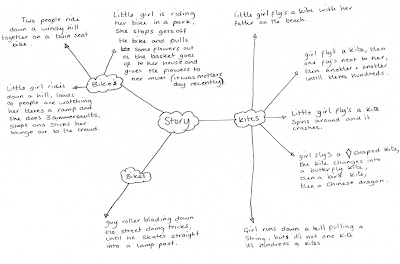 Two people ride
down a windy hill
together on a twin seat
bike.
Little girl is riding
her bike in a park,
She stops gets off
the bike and pulls
some flowers out
of the basket goes
up to her house and
gives the flowers to
her mum (it was mothers
day recently)
Bikes
Little girl rides
down a hill, loads
of people are watching
her theres a ramp and
she does 3 summersaults,
Stops and sticks her
tounge out to the crowd.
Story
Bikes
guy roller blading down
the street doing tricks,
until he skates straight
into a lamp post.
little girl fly's a kite with her
father on the beach.
girl fly's a kite, then
one fly's next to her,
then another + another
until theres hundreds.
Kites
Little girl fly's a kite
Spins around and it
crashes.
girl fly's a ◊ shaped kite,
the kite changes into
a butterfly kite,
then a bird kite,
then a Chinese dragon.
Girl runs down a hill pulling a
String, but it's not one kite
it's hundreds of kites